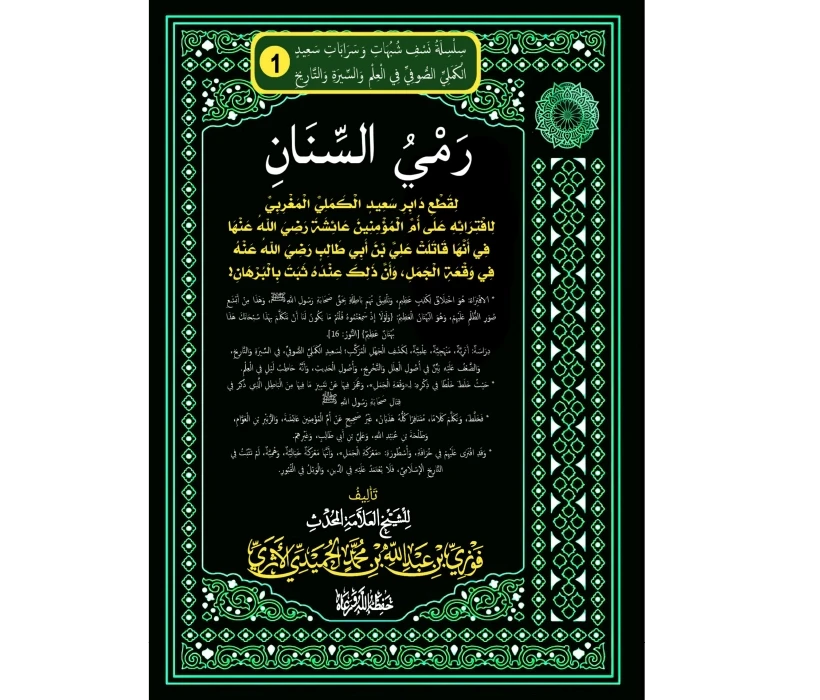 سِلْسِلَةُ نَسْفِ شُبُهَاتِ وَسَرَابَاتِ سَعِيدٍ
الْكَمَلِيِّ الصُّوفِيِّ فِي الْعِلْمِ وَالسِّيرَةِ وَالتَّارِيخِ
1
رَمْيُ السِّنَانِ
لِقَطْعِ دَابِرِ سَعِيدٍ الْكَمَلِيِّ الْمَغْرِبِيِّ
لِافْتِرَائِهِ عَلَى أُمِّ الْمُؤْمِنِينَ عَائِشَةَ رَضِيَ اللهُ عَنْهَا
فِي أَنَّهَا قَاتَلَتْ عَلِيَّ بْنَ أَبِي طَالِبٍ رَضِيَ اللهُ عَنْهُ
فِي وَقْعَةِ الْجَمَلِ، وَأَنَّ ذَلِكَ عِنْدَهُ ثَبَتَ بِالْبُرْهَانِ!
* الافْتِرَاءُ: هُوَ اخْتِلَاقٌ لِكَذِبٍ عَظِيمٍ، وَتَلْفِيقُ تُهَمٍ بَاطِلَةٍ بِحَقِّ صَحَابَةِ رَسُولِ اللهِ ﷺ، وَهَذَا مِنْ أَبْشَعِ
صُوَرِ الظُّلْمِ عَلَيْهِمْ، وَهُوَ الْبُهْتَانُ الْعَظِيمُ: {وَلَوْلَا إِذْ سَمِعْتُمُوهُ قُلْتُمْ مَا يَكُونُ لَنَا أَنْ نَتَكَلَّمَ بِهَذَا سُبْحَانَكَ هَذَا
بُهْتَانٌ عَظِيمٌ} [النُّورُ: 16].
دِرَاسَةٌ: أَثَرِيَّةٌ، مَنْهَجِيَّةٌ، عِلْمِيَّةٌ، لِكَشْفِ الْجَهْلِ الْمُرَكَّبِ؛ لِسَعِيدٍ الْكَمَلِيِّ الصُّوفِيِّ، فِي السِّيرَةِ وَالتَّارِيخِ،
وَالضَّعْفُ عَلَيْهِ بَيِّنٌ فِي أُصُولِ الْعِلَلِ وَالتَّخْرِيجِ، وَأُصُولِ الْحَدِيثِ، وَأَنَّهُ حَاطِبُ لَيْلٍ فِي الْعِلْمِ.
* حَيْثُ خَلَطَ خَلْطًا فِي ذِكْرِهِ: لِـ«وَقْعَةِ الْجَمَلِ»، وَعَجَزَ فِيهَا عَنْ تَمْيِيزِ مَا فِيهَا مِنَ الْبَاطِلِ الَّذِي ذُكِرَ فِي
قِتَالِ صَحَابَةِ رَسُولِ اللهِ ﷺ
* فَخَلَّطَ، وَتَكَلَّمَ كَلَامًا، مُتَنَافِرًا كُلُّهُ هَذَيَانٌ، غَيْرُ صَحِيحٍ عَنْ أُمِّ الْمُؤْمِنِينَ عَائِشَةَ، وَالزُّبَيْرِ بْنِ الْعَوَّامِ،
وَطَلْحَةَ بْنِ عُبَيْدِ اللهِ، وَعَلِيِّ بْنِ أَبِي طَالِبٍ، وَغَيْرِهِمْ.
* وَقَدِ افْتَرَى عَلَيْهِمْ فِي خُرَافَةِ، وَأُسْطُورَةِ: «مَعْرَكَةِ الْجَمَلِ»، وَأَنَّهَا مَعْرَكَةٌ خَيَالِيَّةٌ، وَهْمِيَّةٌ، لَمْ تَثْبُتْ فِي
التَّارِيخِ الْإِسْلَامِيِّ، فَلَا يُعْتَمَدُ عَلَيْهِ فِي الدِّينِ، وَالْوَيْلُ فِي الْقُبُورِ.
تَأْلِيفُ
لِلشَّيْخِ الْعَلَّامَةِ الْمُحَدِّثِ
فَوْزِيِّ بْنِ عَبْدِ اللَّهِ بْنِ مُحَمَّدٍ الْحُمَيْدِيِّ الْأَثَرِيِّ
حَفِظَهُ اللهُ وَرَعَاهُ